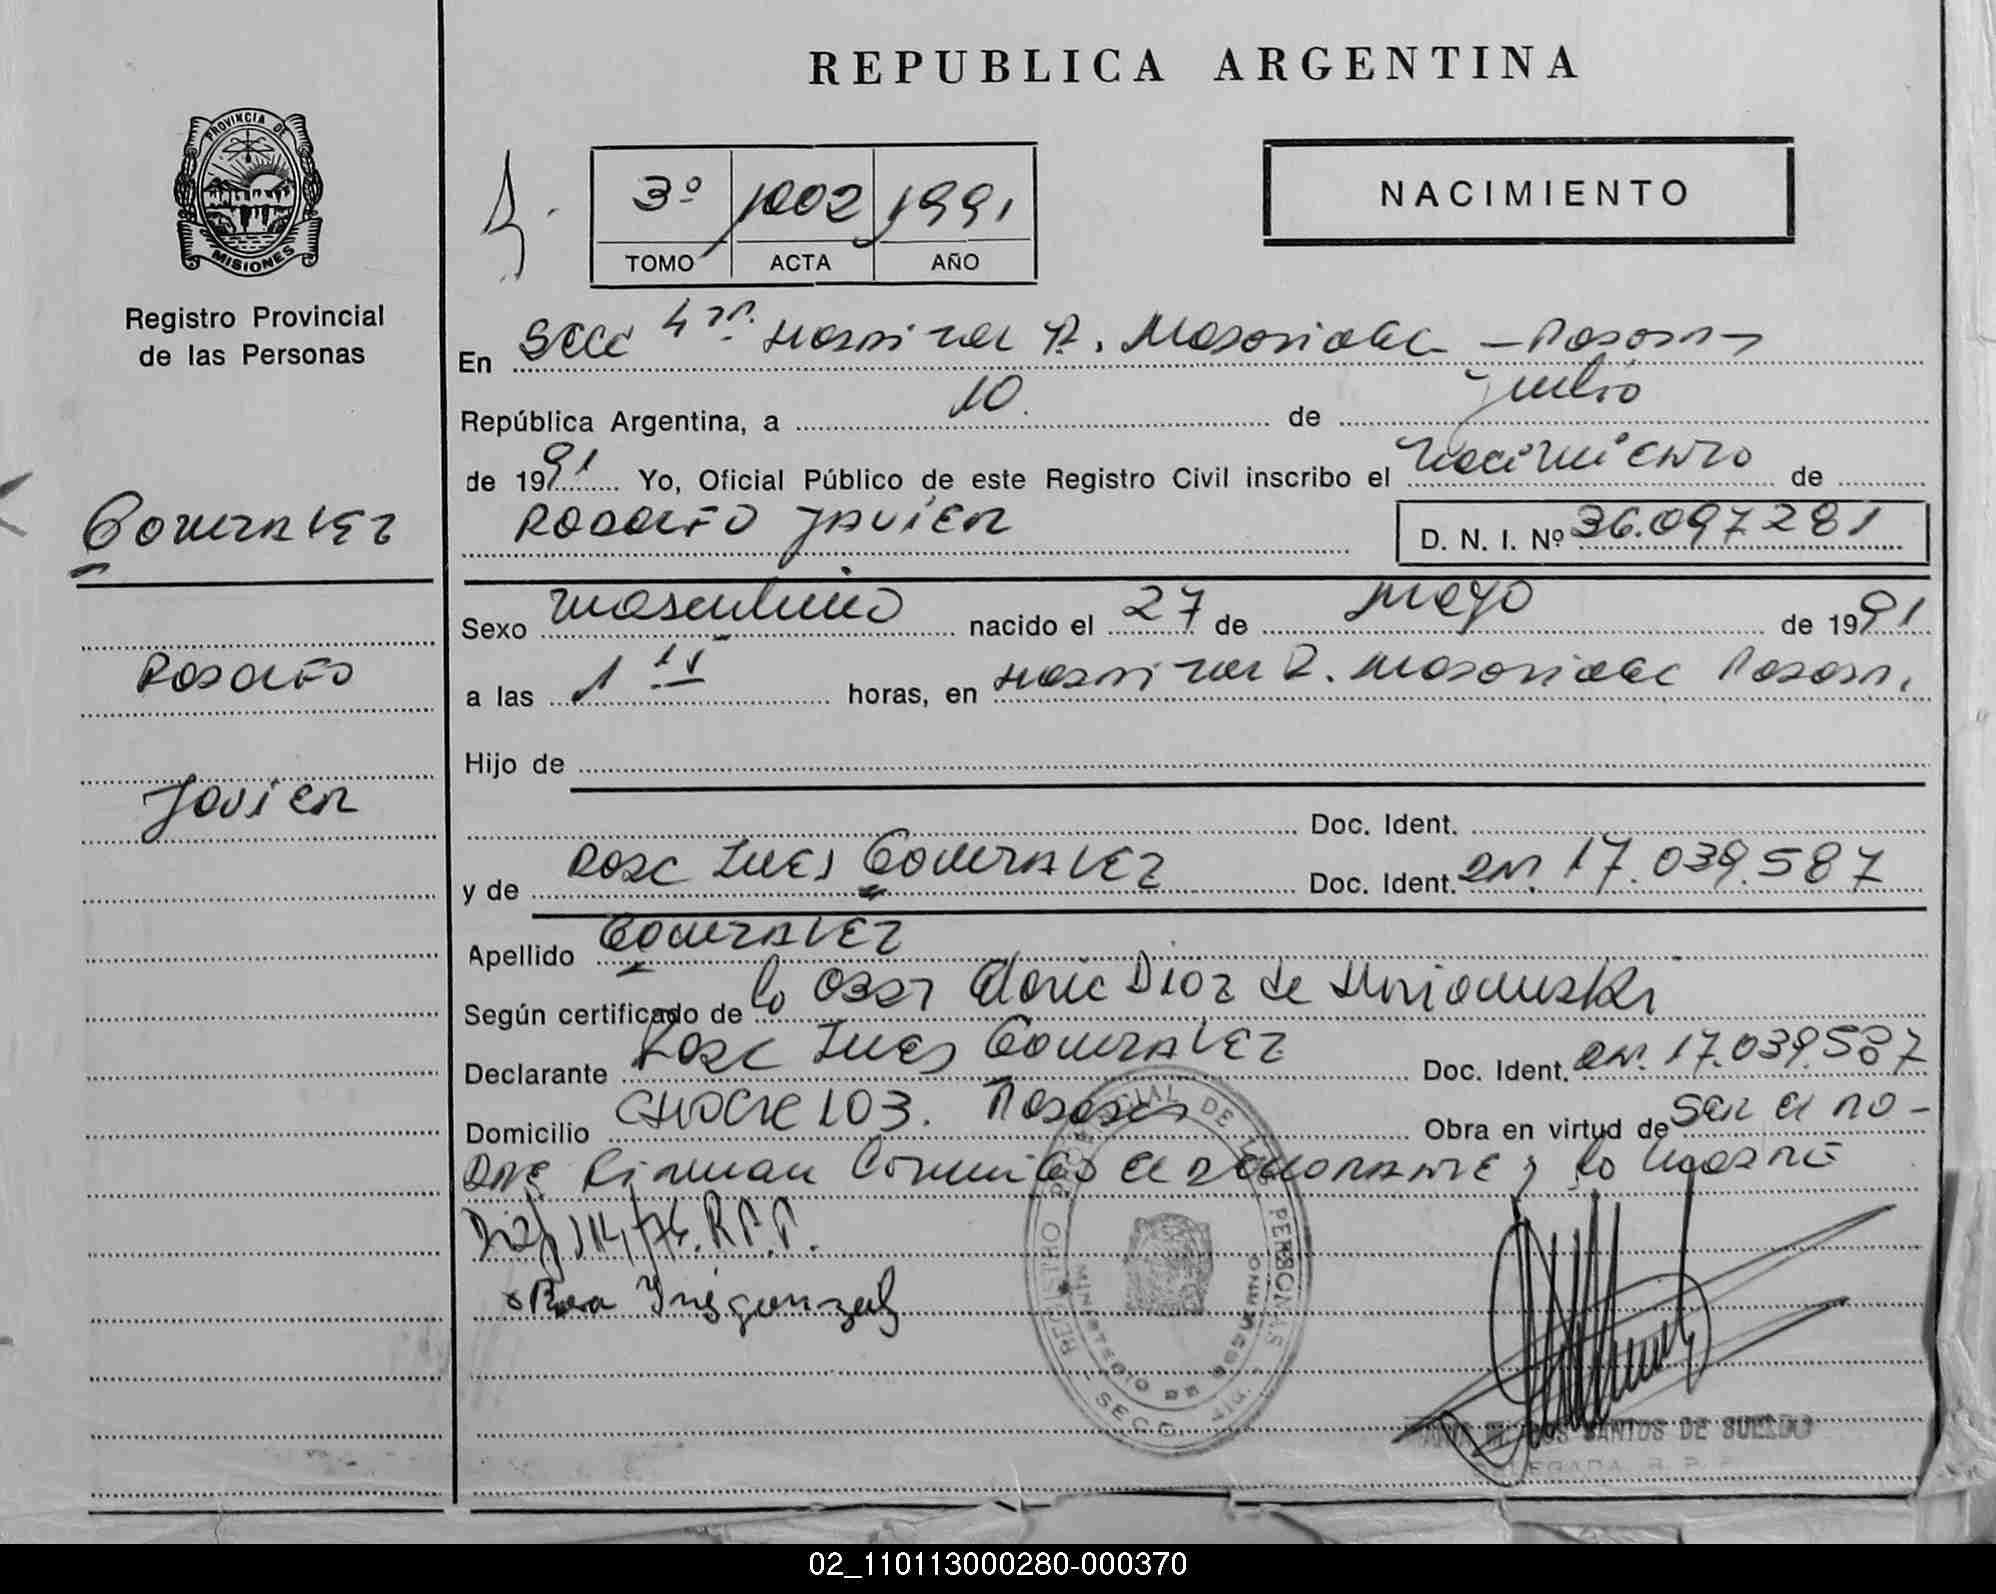 REPUBLICA ARGENTINA
PROVINCIA DE
MISIONES
Registro Provincial
de las Personas
3º 1002 1991
TOMO ACTA AÑO
NACIMIENTO
En Secc 4ta. Hospital R. Madariaga - Posadas
República Argentina, a 10. de Julio
de 1991 Yo, Oficial Público de este Registro Civil inscribo el nacimiento de
RODOLFO JAVIER
D. N. I. Nº 36.097.281
GONZALEZ
RODOLFO
Javier
Sexo masculino nacido el 27 de mayo de 1991
a las 1 15 horas, en Hospital R. Madariaga Posadas.
Hijo de
Doc. Ident.
y de Rosa Ines GONZALEZ Doc. Ident. DNI. 17.039.587
Apellido GONZALEZ
Según certificado de la Obst Gloria Diaz de
Declarante Rosa Ines GONZALEZ Doc. Ident. DNI. 17.039.587
Domicilio 103. Posadas Obra en virtud de ser la ma-
dre Firman Conmigo el declarante y la
Disp 114/76. R.P.P.
Rosa Inés gonzalez
REGISTRO PROVINCIAL DE LAS PERSONAS
MINISTERIO DE GOBIERNO
SECC. 4ta.
SANTOS DE SUELDO
DELEGADA R. P. P.
02_110113000280-000370